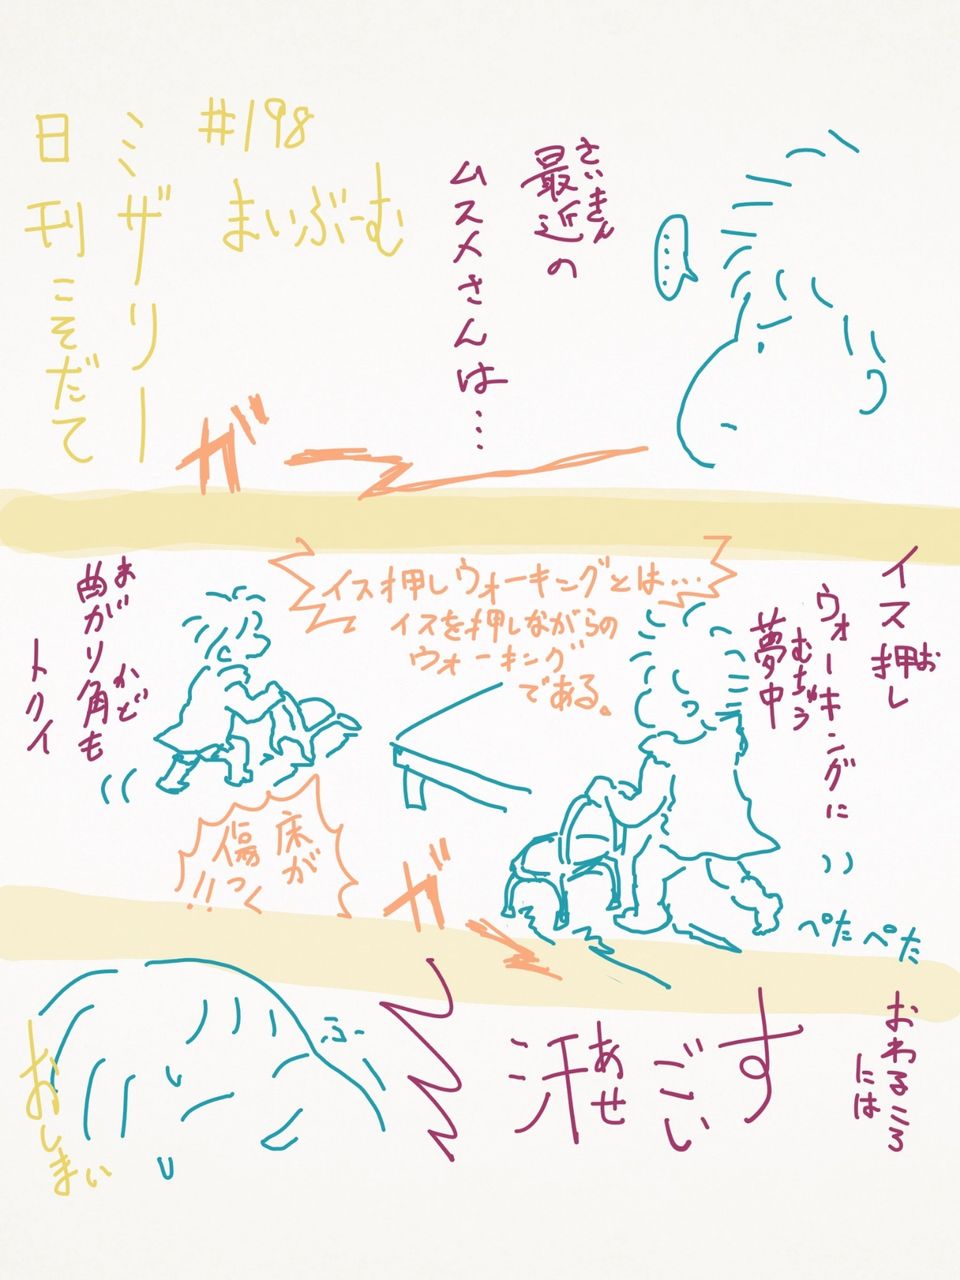 日刊こそだて
ミザリー
#198
まいぶーむ
最近の
さいきん
ムスメさんは…
……
ガー
イス押し
お
ウォーキングに
夢中
むちゅう
イス押しウォーキングとは…
イスを押しながらの
ウォーキング
である。
ぺたぺた
ガー
曲がり角も
ま
かど
トクイ
床が
傷つく
!!
おわるころ
には
すごい
汗
あせ
ふー
おしまい